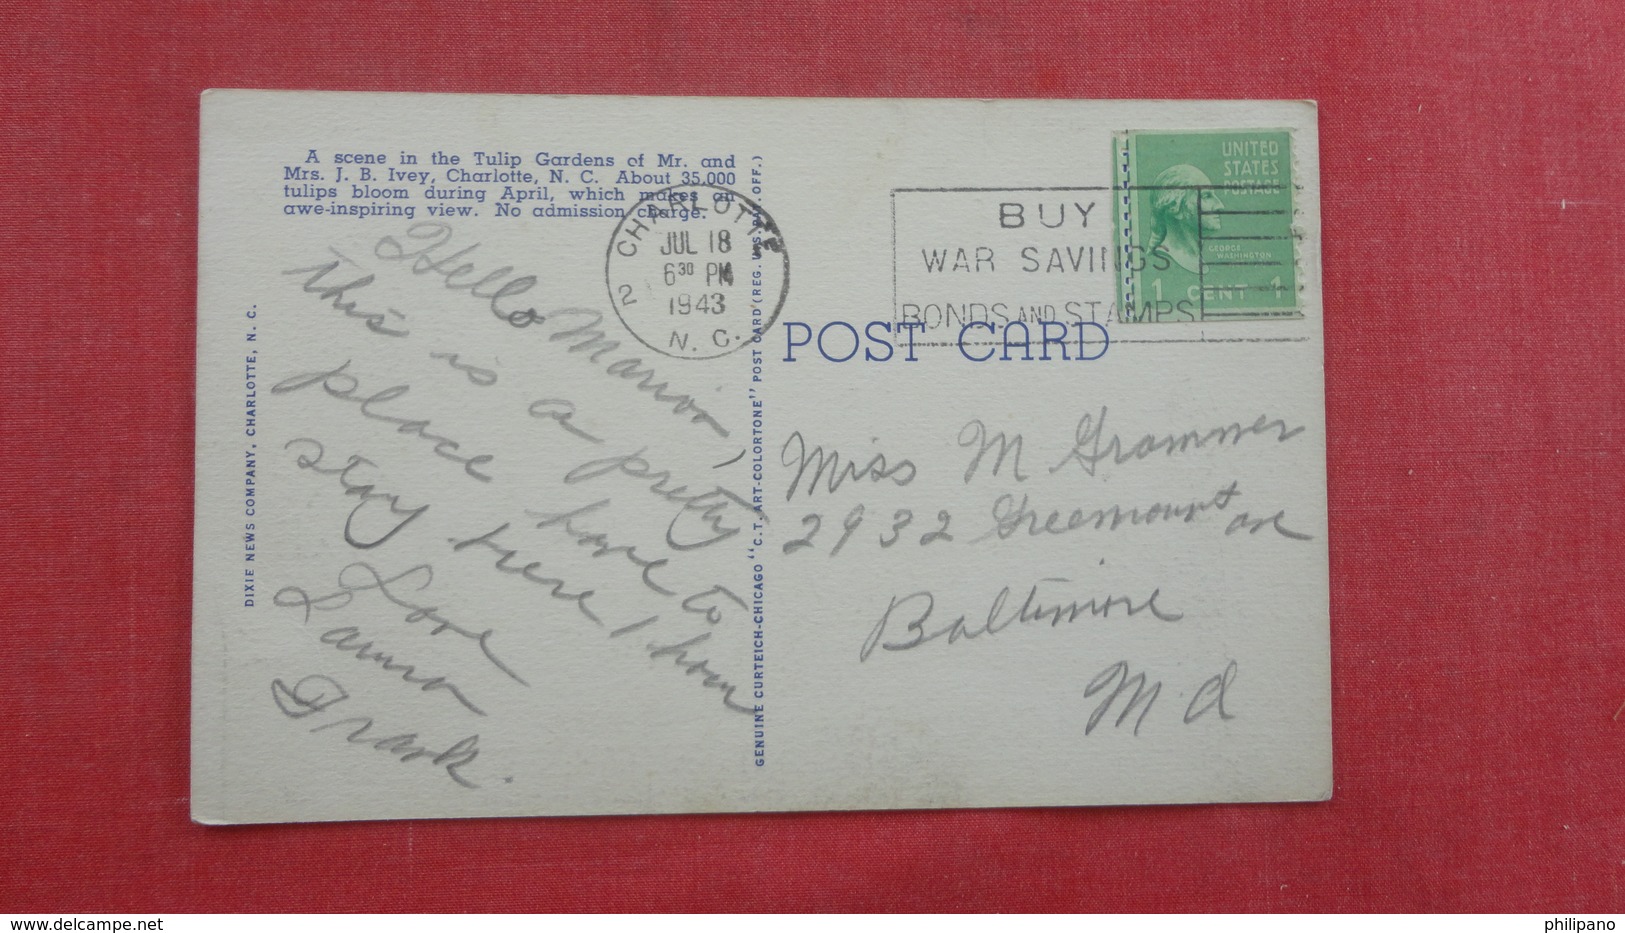 A scene in the Tulip Gardens of Mr. and
Mrs. J. B. Ivey, Charlotte, N. C. About 35,000
tulips bloom during April, which makes an
awe-inspiring view. No admission charge.
CHARLOTTE
JUL 18
6 30 PM
1943
N. C.
2
BUY
WAR SAVINGS
BONDS AND STAMPS
UNITED
STATES
POSTAGE
GEORGE
WASHINGTON
1 CENT 1
POST CARD
Hello Marion,
this is a pretty
place have to
stay here 1 hour
Love
Frank.
DIXIE NEWS COMPANY, CHARLOTTE, N. C.
GENUINE CURTEICH-CHICAGO "C.T. ART-COLORTONE" POST CARD (REG. U.S. PAT. OFF.)
Miss M Grammer
2932 ave
Baltimore
M.d
delcampe.net
philipano